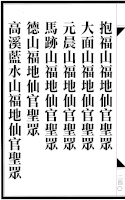 抱福山福地仙官聖眾
大面山福地仙官聖眾
元晨山福地仙官聖眾
馬蹄山福地仙官聖眾
德山福地仙官聖眾
高溪藍水山福地仙官聖眾